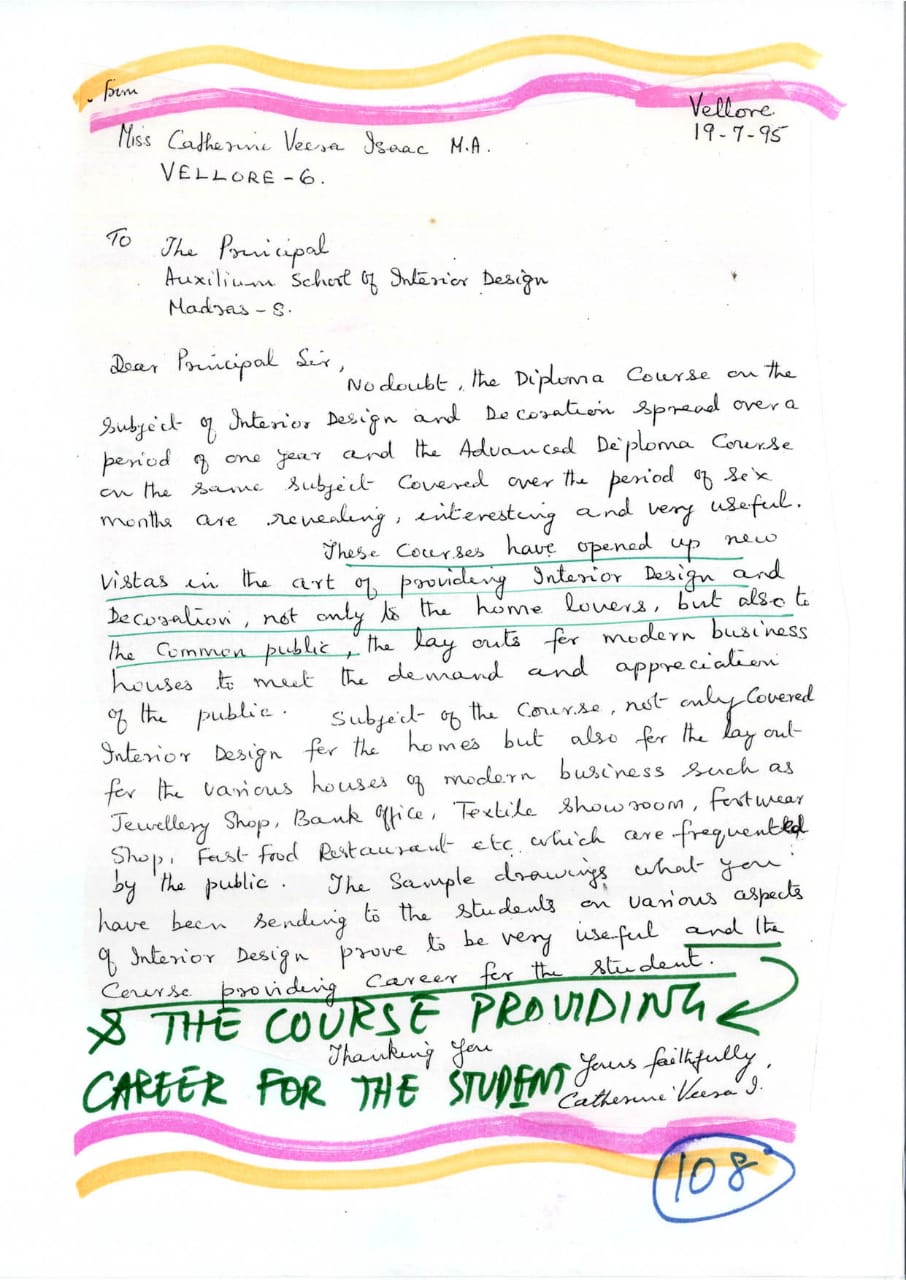 from
Vellore
19-7-95
Miss Catherine Veera Isaac M.A.
VELLORE-6.
To
The Principal
Auxilium School of Interior Design
Madras-8.
Dear Principal Sir,
No doubt, the Diploma Course on the
Subject of Interior Design and Decoration spread over a
period of one year and the Advanced Diploma Course
on the same subject covered over the period of six
months are revealing, interesting and very useful.
These courses have opened up new
vistas in the art of providing Interior Design and
Decoration, not only to the home lovers, but also to
the Common public, the lay outs for modern business
houses to meet the demand and appreciation
of the public. Subject of the Course, not only Covered
Interior Design for the homes but also for the lay out
for the various houses of modern business such as
Jewellery Shop, Bank Office, Textile showroom, footwear
Shop, Fast Food Restaurant etc which are frequented
by the public. The Sample drawings what you
have been sending to the students on various aspects
of Interior Design prove to be very useful and the
Course providing Career for the student.
& THE COURSE PROVIDING
Thanking You
Yours faithfully,
CAREER FOR THE STUDENT
Catherine Veera I.
108